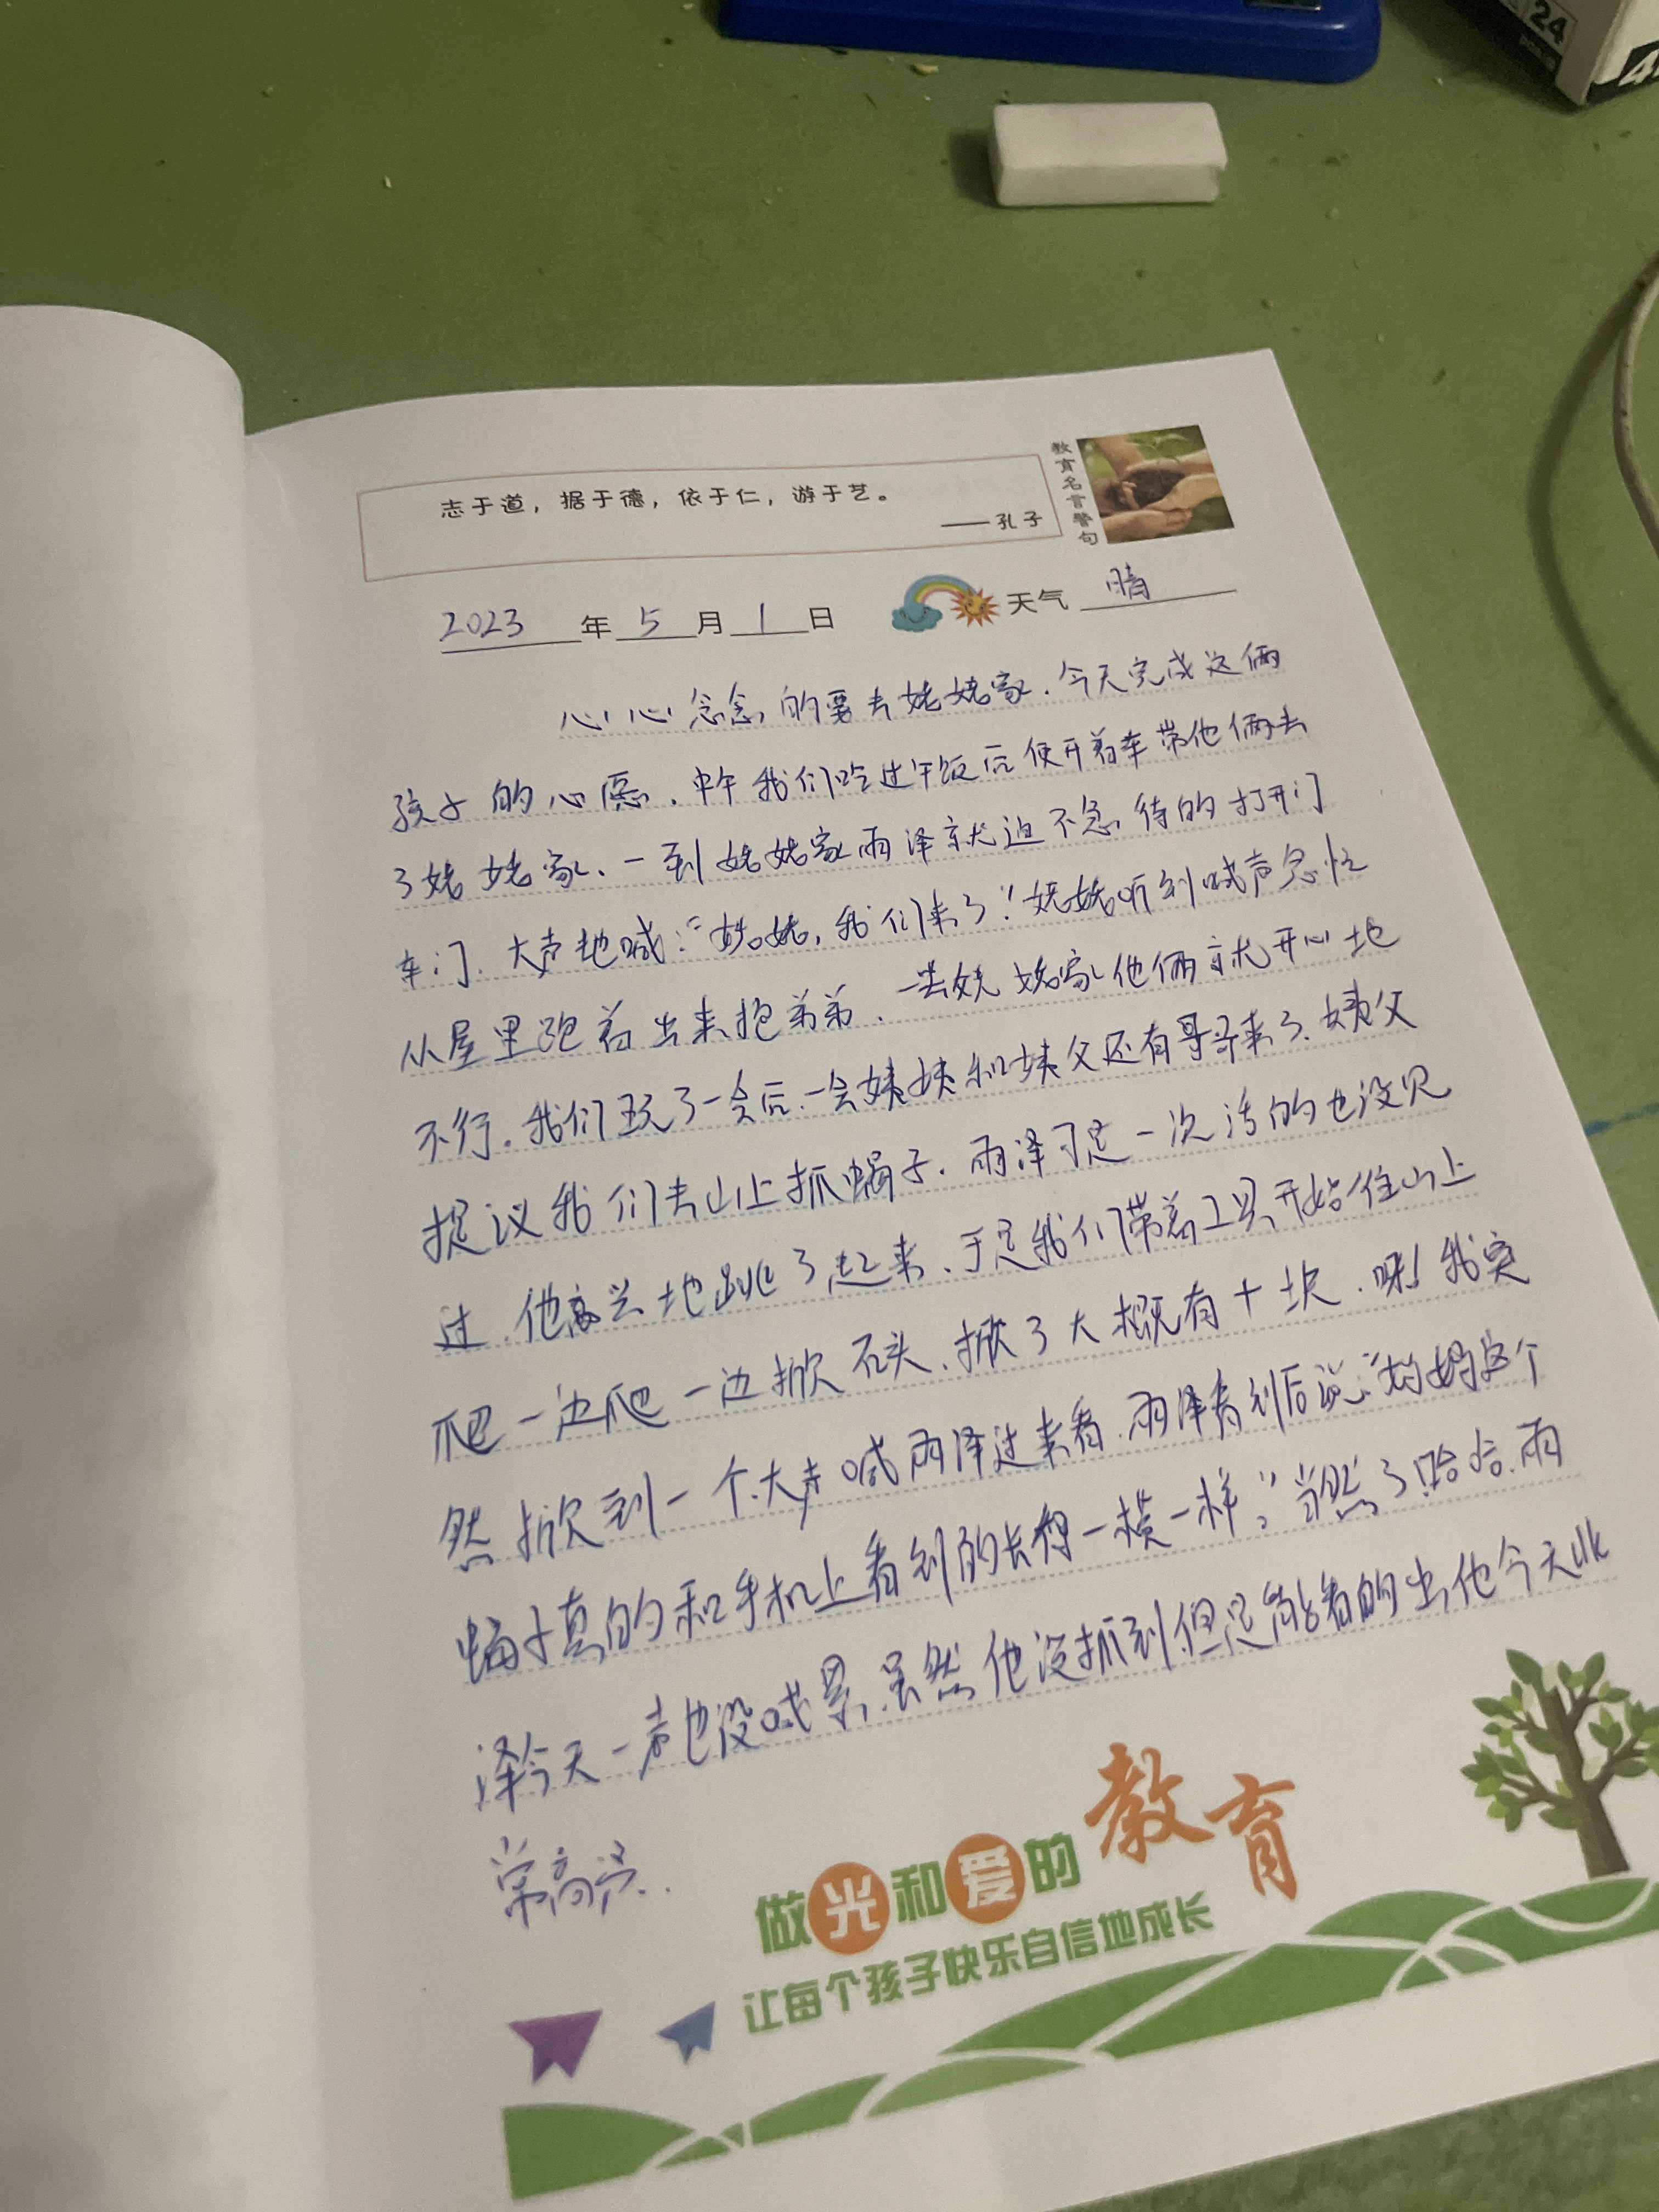 24
志于道，据于德，依于仁，游于艺。
——孔子
教育名言警句
2023年5月1日 天气 晴
心心念念的要去姥姥家.今天完成这俩
孩子的心愿.中午我们吃过午饭后便开着车带他俩去
了姥姥家、一到姥姥家雨泽就迫不急待的打开门
车门.大声地喊:“姥姥,我们来了!”姥姥听到喊声急忙
从屋里跑着出来抱弟弟.一去姥姥家他俩就开心地
不行.我们玩了一会后.一会姨姨和姨父还有哥哥来了.姨父
提议我们去山上抓蝎子.雨泽可是一次活的也没见
过.他高兴地跳了起来.于是我们带着工具开始往山上
爬一边爬一边掀石头.掀了大概有十块.呀!我突
然掀到一个.大声喊雨泽过来看.雨泽看到后说:“妈妈这个
蝎子真的和手机上看到的长得一模一样”.当然了哈哈.雨
泽今天一声也没喊累.虽然他没抓到.但是能看的出他今天非
常高兴.
做光和爱的教育
让每个孩子快乐自信地成长